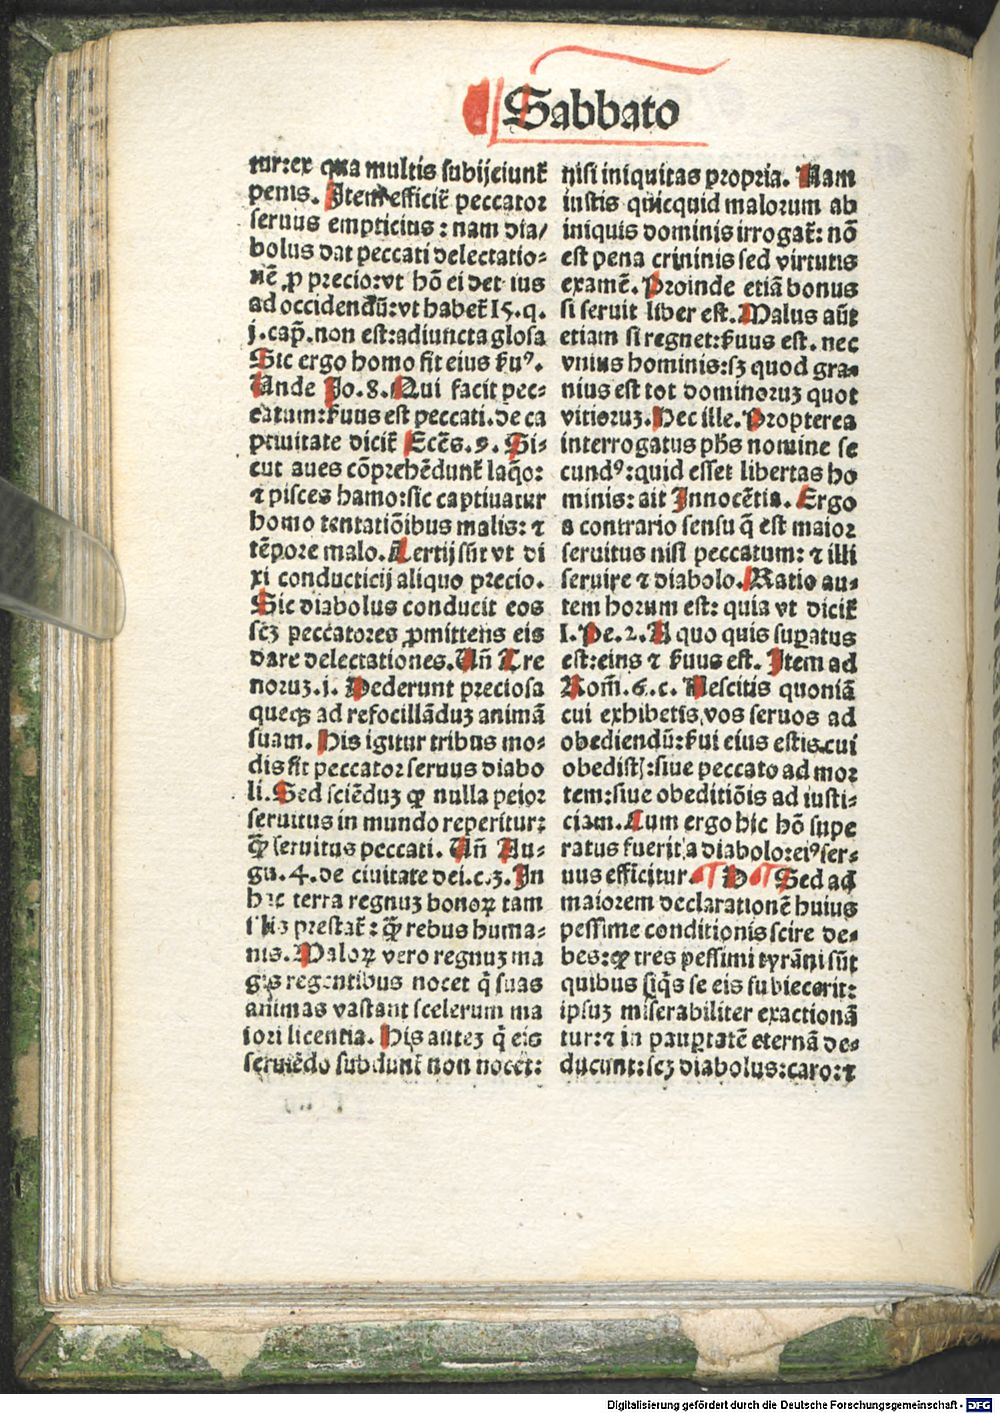 Sabbato
tur:ex qua multis subijciunt̃
penis. Item efficit̃ peccator
seruus empticius : nam dia/
bolus dat peccati delectatio-
nẽ ꝓ precio:vt hõ ei det ius
ad occidendũ:vt habet̃ 15. q.
j. cap̃. non est:adiuncta glosa
Sic ergo homo fit eius ẜuꝰ.
Unde Jo. 8. Qui facit pec-
catum:ẜuus est peccati. de ca
ptiuitate dicit̃ Ecc̃s. 9. Si-
cut aues cõprehẽdunt̃ laq̃o:
⁊ pisces hamo:sic captiuatur
homo tentatiõibus malis: ⁊
tẽpore malo. Tertij sũt vt di
xi conducticij aliquo precio.
Sic diabolus conducit eos
scꝫ peccatores ꝓmittens eis
dare delectationes. Uñ Tre
noruꝫ. j. Dederunt preciosa
queqꝫ ad refocillãduꝫ animã
suam. His igitur tribus mo-
dis fit peccator seruus diabo
li. Sed sciẽduꝫ ꝙ nulla peior
seruitus in mundo reperitur:
ꝙ̃ seruitus peccati. Uñ Au-
gu. 4. de ciuitate dei. c. 3. In
hac terra regnuꝫ bonoꝝ tam
prestat̃ : ꝙ̃ rebus huma-
nis. Maloꝝ vero regnuꝫ ma
gis regentibus nocet q̃ suas
animas vastant scelerum ma
iori licentia. His auteꝫ q̃ eis
seruiẽdo subdunt̃ non nocet:
nisi iniquitas propria. Nam
iustis quicquid malorum ab
iniquis dominis irrogat̃: nõ
est pena criminis sed virtutis
examẽ. Proinde etiã bonus
si seruit liber est. Malus aũt
etiam si regnet:ẜuus est. nec
vnius hominis:sꝫ quod gra-
uius est tot dominoruꝫ quot
vitioruꝫ. Hec ille. Propterea
interrogatus ph̃s nomine se
cundꝰ:quid esset libertas ho
minis: ait Innocẽtia. Ergo
a contrario sensu q̃ est maior
seruitus nisi peccatum: ⁊ illi
seruire ⁊ diabolo. Ratio au-
tem horum est: quia vt dicit̃
1. Pe. 2. A quo quis suꝑatus
est:eius ⁊ ẜuus est. Item ad
Rom̃. 6. c. Nescitis quoniã
cui exhibetis vos seruos ad
obediendũ:ẜui eius estis cui
obedistꝭ:siue peccato ad mor
tem:siue obeditiõis ad iusti-
ciam. Cum ergo hic hõ supe
ratus fuerit a diabolo:eiꝰ ser-
uus efficitur. Sed ad
maiorem declarationẽ huius
pessime conditionis scire de-
bes:ꝙ tres pessimi tyrãni sũt
quibus siq̃s se eis subiecerit:
ipsuꝫ miserabiliter exactionã
tur:⁊ in pauꝑtatẽ eternã de-
ducunt:scꝫ diabolus:caro:⁊
Digitalisierung gefördert durch die Deutsche Forschungsgemeinschaft - DFG